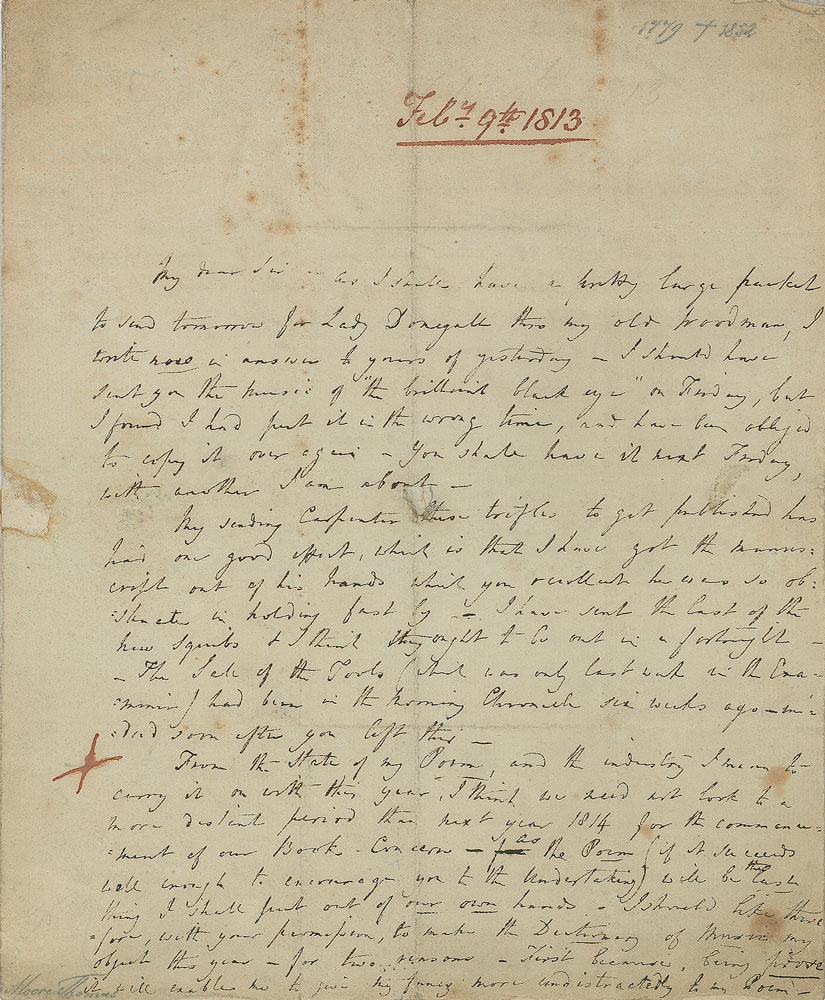 1779 + 1852
Feby. 9th. 1813
My dear Sir – as I shall have a pretty large packet
to send tomorrow for Lady Donegall thro my old Woodman, I
write now in answer to yours of yesterday – I should have
sent you the music of "the brilliant black eye" on Friday, but
I found I had put it in the wrong time, and have been obliged
to copy it over again – You shall have it next Friday,
with another I am about –
My sending Carpenter these trifles to get published has
had one good effect, which is that I have got the manus=
cripts out of his hands which you recollect he was so ob=
=stinate in holding fast by – I have sent the last of the
new Squibs & I think they ought to be out in a fortnight –
– The Sale of the Tools (which was only last week in the Exa=
=miner) had been in the Morning Chronicle six weeks ago – in=
=deed soon after you left this –
From the State of my Poem, and the industry I mean to
carry it on with this year, I think we need not look to a
more distant period than next year 1814 for the commence=
=ment of our Book-Concern – as the Poem (if it succeeds
well enough to encourage you to the Undertaking) will be the last
thing I shall put out of our own hands – I should like there=
=fore, with your permission, to make the Dictionary of Music my
object this year – for two reasons – First because, being prose
it will enable me to give my fancy more undistractedly to my Poem –
Moore Thomas